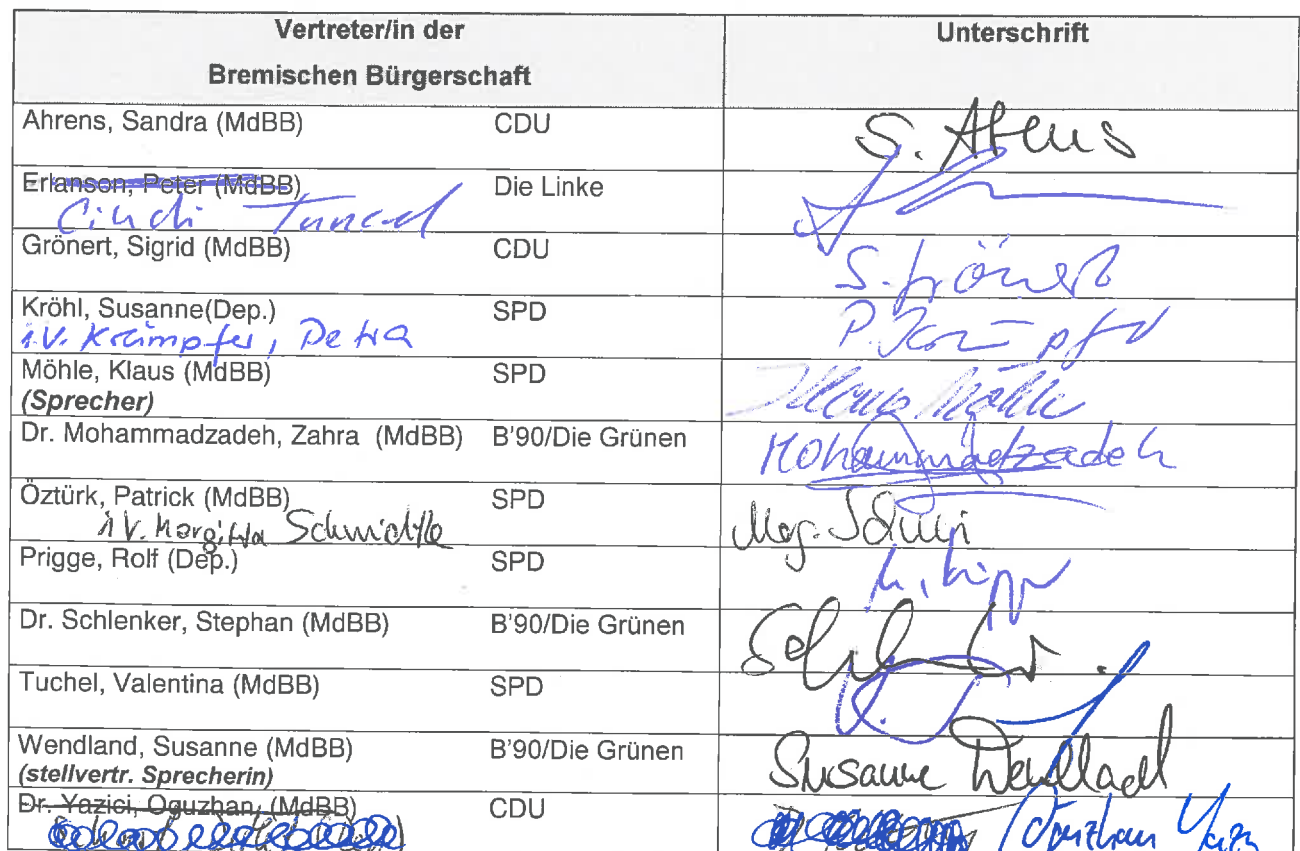 Vertreter/in der
Bremischen Bürgerschaft
Unterschrift
Ahrens, Sandra (MdBB) CDU S. Ahrens
Erlanson, Peter (MdBB) Die Linke
Cindi Tuncel
Grönert, Sigrid (MdBB) CDU S. Grönert
Kröhl, Susanne(Dep.) SPD
i.V. Krümpfer, Petra P. Krümpfer
Möhle, Klaus (MdBB) SPD Klaus Möhle
(Sprecher)
Dr. Mohammadzadeh, Zahra (MdBB) B'90/Die Grünen Mohammadzadeh
Öztürk, Patrick (MdBB) SPD
i.V. Margitta Schmidtke
Prigge, Rolf (Dep.) SPD
Dr. Schlenker, Stephan (MdBB) B'90/Die Grünen
Tuchel, Valentina (MdBB) SPD
Wendland, Susanne (MdBB) B'90/Die Grünen Susanne Wendland
(stellvertr. Sprecherin)
Dr. Yazici, Oguzhan, (MdBB) CDU Oguzhan Yazici